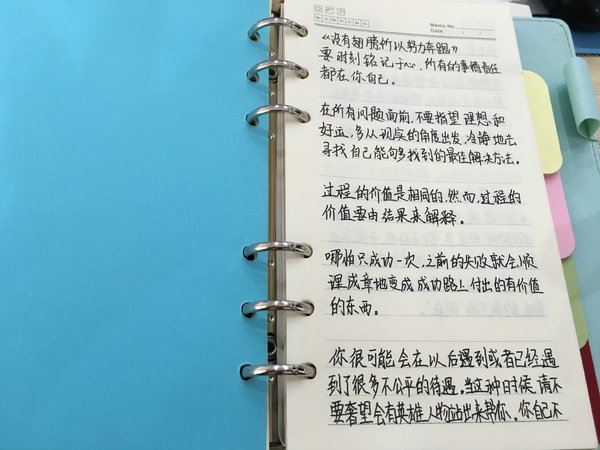 Memo No.
Date / /
《没有翅膀所以努力奔跑》
要时刻铭记于心,所有的事情责任
都在你自己。
在所有问题面前,不要指望理想和
好运,多从现实的角度出发,冷静地去
寻找自己能够找到的最佳解决方法。
过程的价值是相同的,然而,过程的
价值要由结果来解释。
哪怕只成功一次,之前的失败就会顺
理成章地变成成功路上付出的有价值
的东西。
你很可能会在以后遇到或者已经遇
到了很多不公平的待遇。当这种时候,请不
要奢望会有英雄人物站出来帮你。你自己不